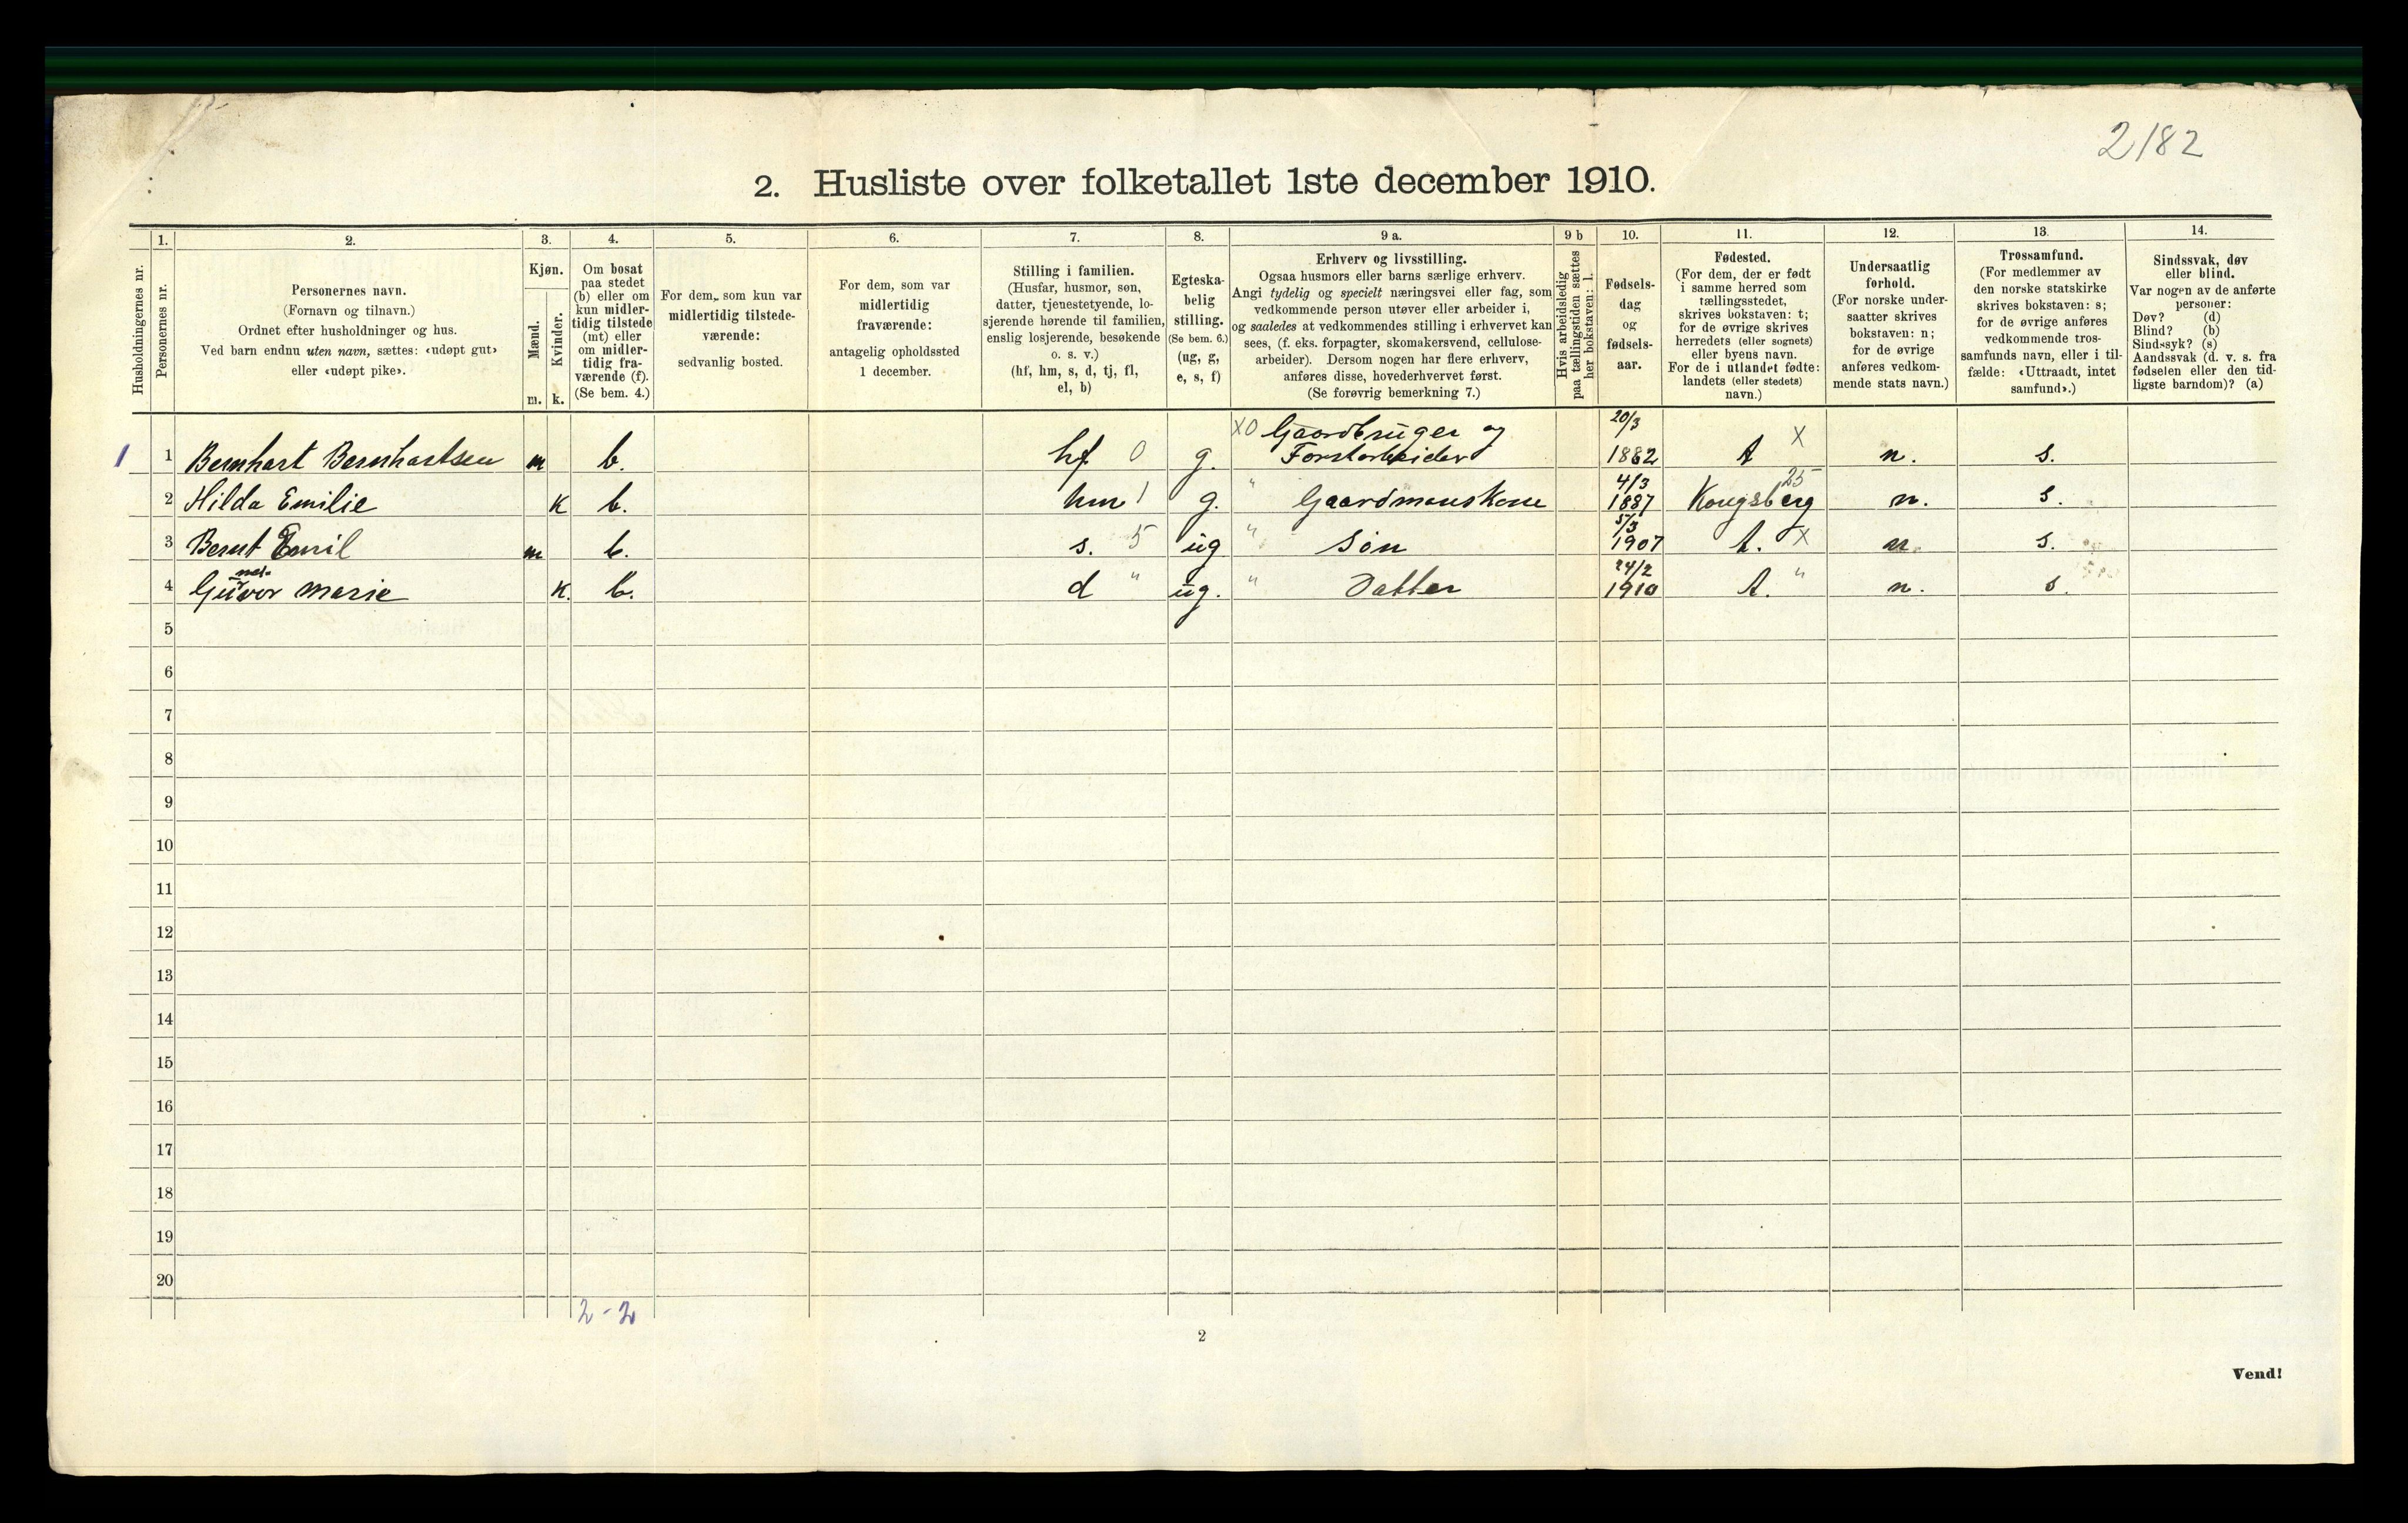 2/82
2. Husliste over folketallet 1ste december 1910.
Husholdningernes nr.
1.
Personernes nr.
2.
Personernes navn.
(Fornavn og tilnavn.)
Ordnet efter husholdninger og hus.
Ved barn endnu uten navn, sættes: «udøpt gut»
eller «udøpt pike».
3.
Kjøn.
Mænd.
Kvinder.
m. k.
4.
Om bosat
paa stedet
(b) eller om
kun midler-
tidig tilstede
(mt) eller
om midler-
tidig fra-
værende (f).
(Se bem. 4.)
5.
For dem, som kun var
midlertidig tilstede-
værende:
sedvanlig bosted.
6.
For dem, som var
midlertidig
fraværende:
antagelig opholdssted
1 december.
7.
Stilling i familien.
(Husfar, husmor, søn,
datter, tjenestetyende, lo-
sjerende hørende til familien,
enslig losjerende, besøkende
o. s. v.)
(hf, hm, s, d, tj, fl,
el, b)
8.
Egteska-
belig
stilling.
(Se bem. 6.)
(ug, g,
e, s, f)
9 a.
Erhverv og livsstilling.
Ogsaa husmors eller barns særlige erhverv.
Angi tydelig og specielt næringsvei eller fag, som
vedkommende person utøver eller arbeider i,
og saaledes at vedkommendes stilling i erhvervet kan
sees, (f. eks. forpagter, skomakersvend, cellulose-
arbeider). Dersom nogen har flere erhverv,
anføres disse, hovederhvervet først.
(Se forøvrig bemerkning 7.)
9 b
Hvis arbeidsledig
paa tællingstiden sættes
her bokstaven: l.
10.
Fødsels-
dag
og
fødsels-
aar.
11.
Fødested.
(For dem, der er født
i samme herred som
tællingsstedet,
skrives bokstaven: t;
for de øvrige skrives
herredets (eller sognets)
eller byens navn.
For de i utlandet fødte:
landets (eller stedets)
navn.)
12.
Undersaatlig
forhold.
(For norske under-
saatter skrives
bokstaven: n;
for de øvrige
anføres vedkom-
mende stats navn.)
13.
Trossamfund.
(For medlemmer av
den norske statskirke
skrives bokstaven: s;
for de øvrige anføres
vedkommende tros-
samfunds navn, eller i til-
fælde: «Uttraadt, intet
samfund».)
14.
Sindssvak, døv
eller blind.
Var nogen av de anførte
personer:
Døv? (d)
Blind? (b)
Sindssyk? (s)
Aandssvak (d. v. s. fra
fødselen eller den tid-
ligste barndom)? (a)
X0 Gaardbruger og 20/3
1 1 Bernhart Bernhartsen m b. hf 0 g. Forstarbeider 1882 t X n. s.
2 Hilda Emilie k b. hm 1 g. " Gaardmanskone 4/3 1887 Kongsberg 25 n. s.
3 Bernt Emil m b. s. 5 ug " Søn 5/3 1907 t. X n. s.
4 Guvor Marie k. b. d " ug. " Datter 24/2 1910 t. " n. s.
5
6
7
8
9
10
11
12
13
14
15
16
17
18
19
20
2-2
2
Vend!